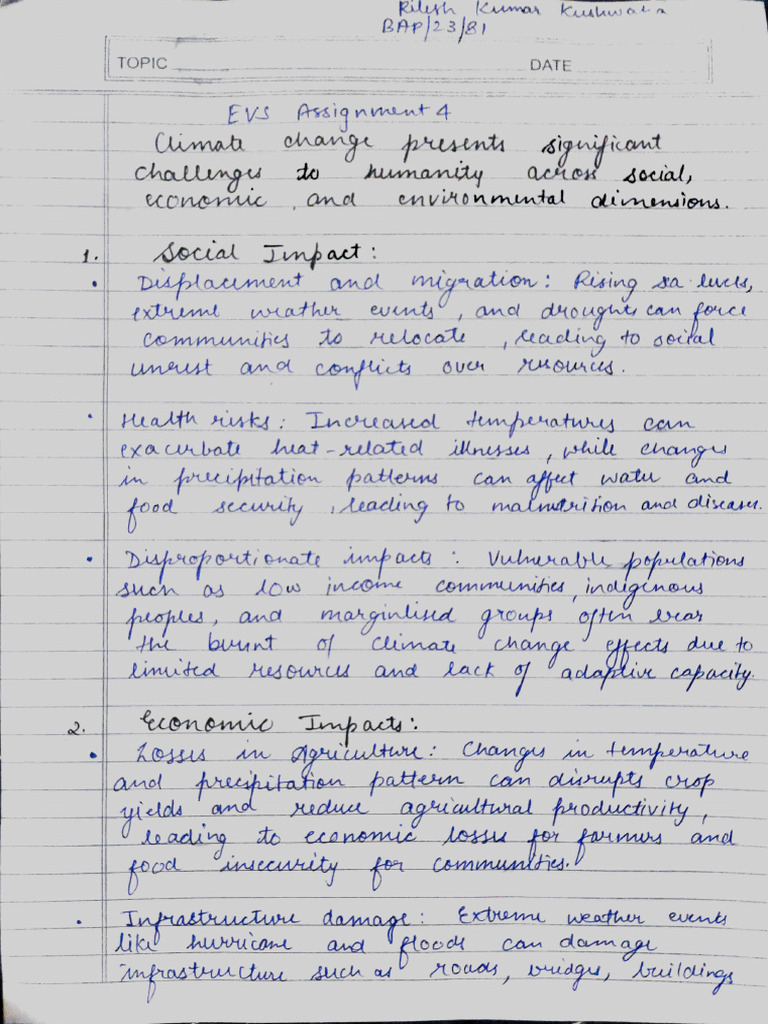 Ritesh Kumar Kushwaha
BAP/23/81
TOPIC DATE
EVS Assignment 4
Climate change presents significant
challenges to humanity across social,
economic, and environmental dimensions.
1. Social Impact:
• Displacement and migration: Rising sea levels,
extreme weather events, and droughts can force
communities to relocate, leading to social
unrest and conflicts over resources.
• Health risks: Increased temperatures can
exacerbate heat-related illnesses, while changes
in precipitation patterns can affect water and
food security, leading to malnutrition and diseases.
• Disproportionate impacts: Vulnerable populations
such as low income communities, indigenous
peoples, and marginlised groups often bear
the burnt of climate change effects due to
limited resources and lack of adaptive capacity.
2. Economic Impacts:
• Losses in Agriculture: Changes in temperature
and precipitation pattern can disrupts crop
yields and reduce agricultural productivity,
leading to economic losses for farmers and
food insecurity for communities.
• Infrastructure damage: Extreme weather events
like hurricane and floods can damage
infrastructure such as roads, bridges, buildings